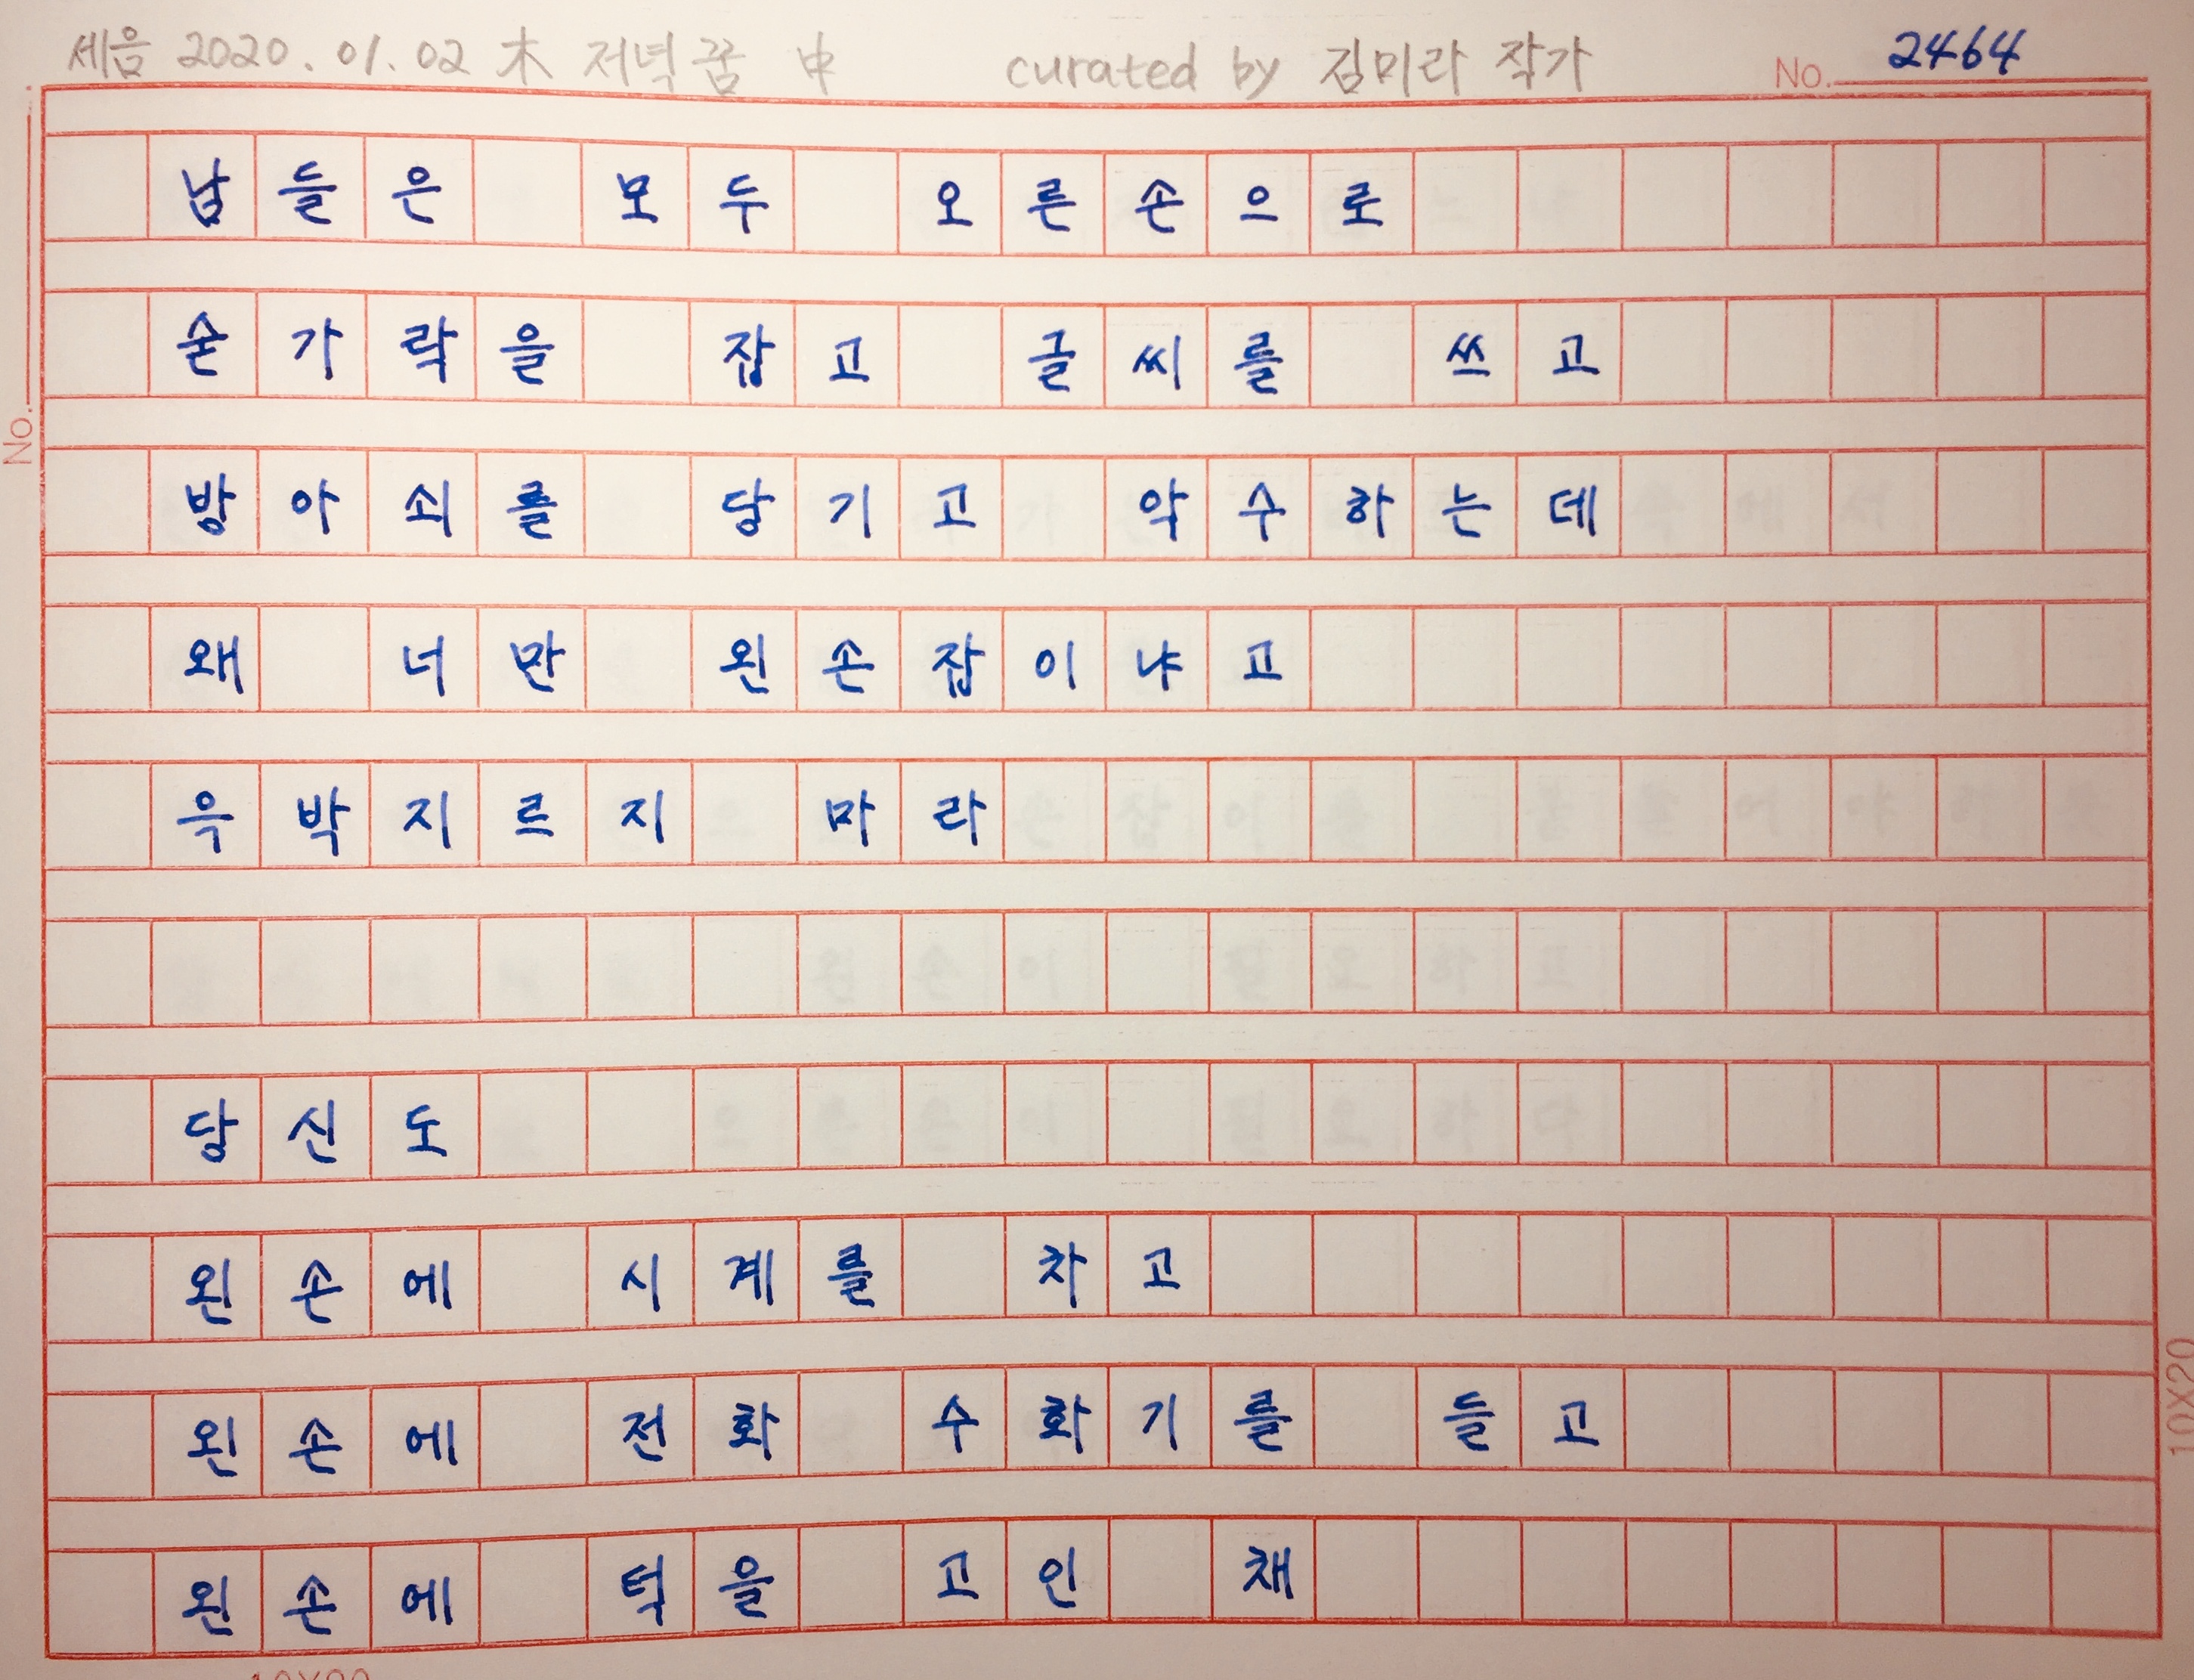 세음 2020.01.02 木 저녁꿈 中 curated by 김미라 작가 No. 2464
남들은 모두 오른손으로
숟가락을 잡고 글씨를 쓰고
방아쇠를 당기고 악수하는데
왜 너만 왼손잡이냐고
윽박지르지 마라
당신도
왼손에 시계를 차고
왼손에 전화 수화기를 들고
왼손에 턱을 고인 채
No.
10X20
10X20